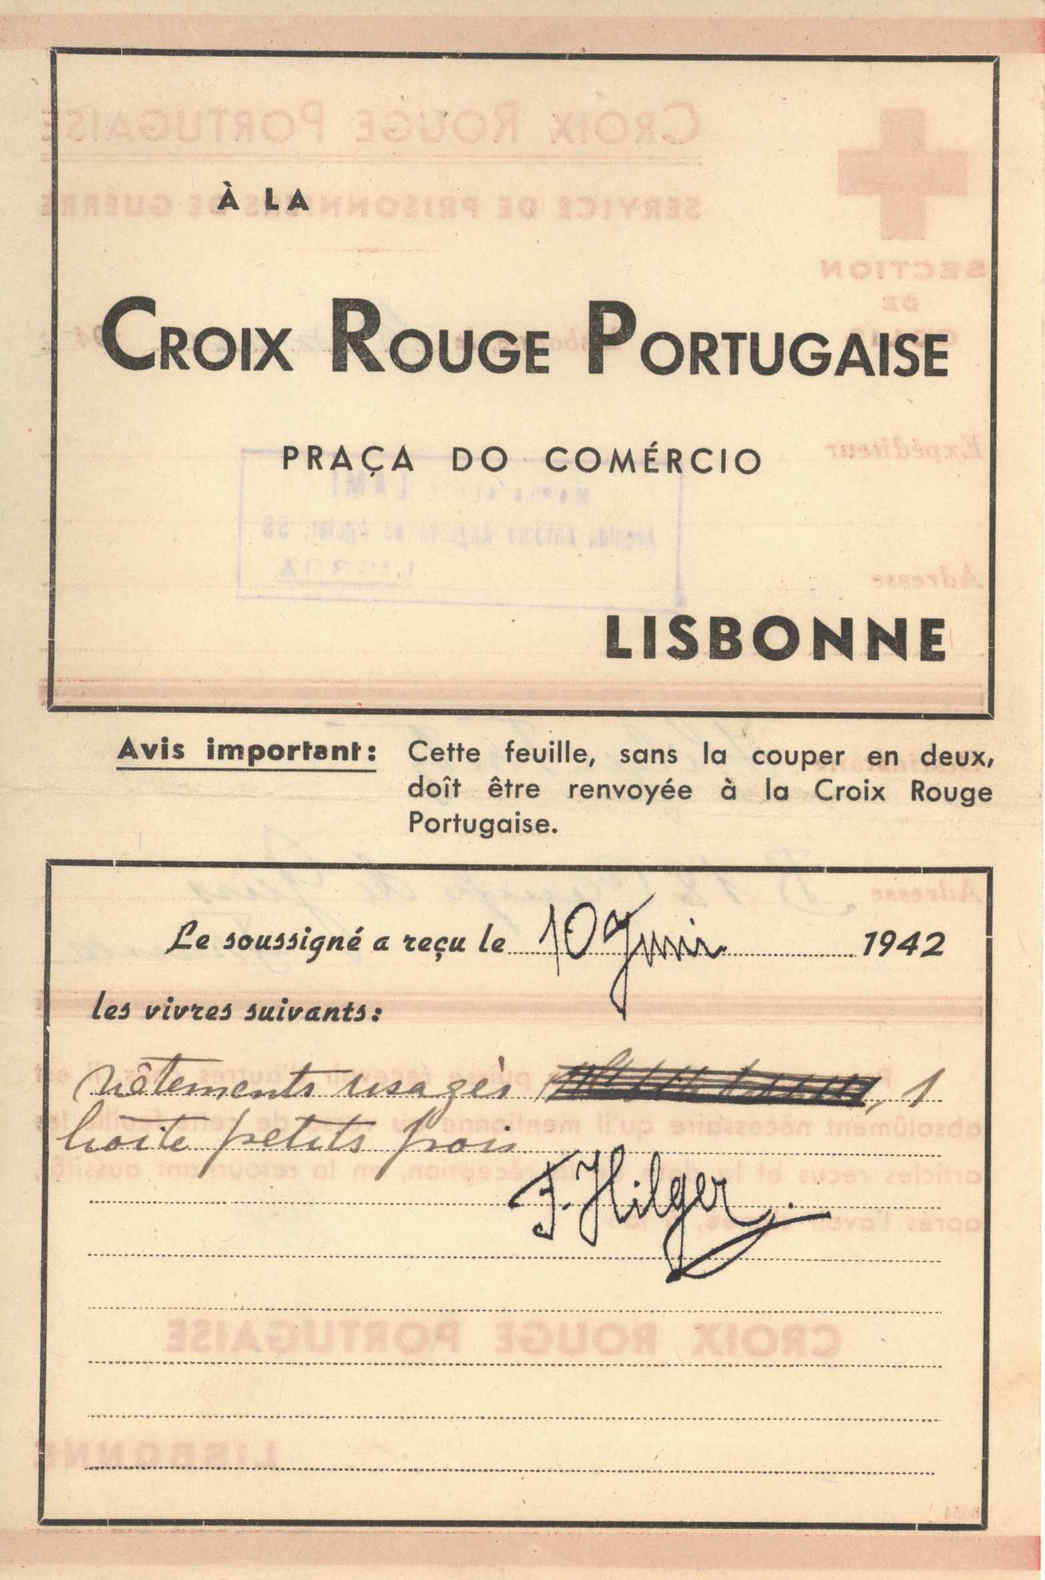 À LA
CROIX ROUGE PORTUGAISE
PRAÇA DO COMÉRCIO
LISBONNE
Avis important: Cette feuille, sans la couper en deux,
doît être renvoyée à la Croix Rouge
Portugaise.
Le soussigné a reçu le 10 Juni 1942
les vivres suivants:
vêtements usagés , 1
boîte petits pois
F. Hilger.